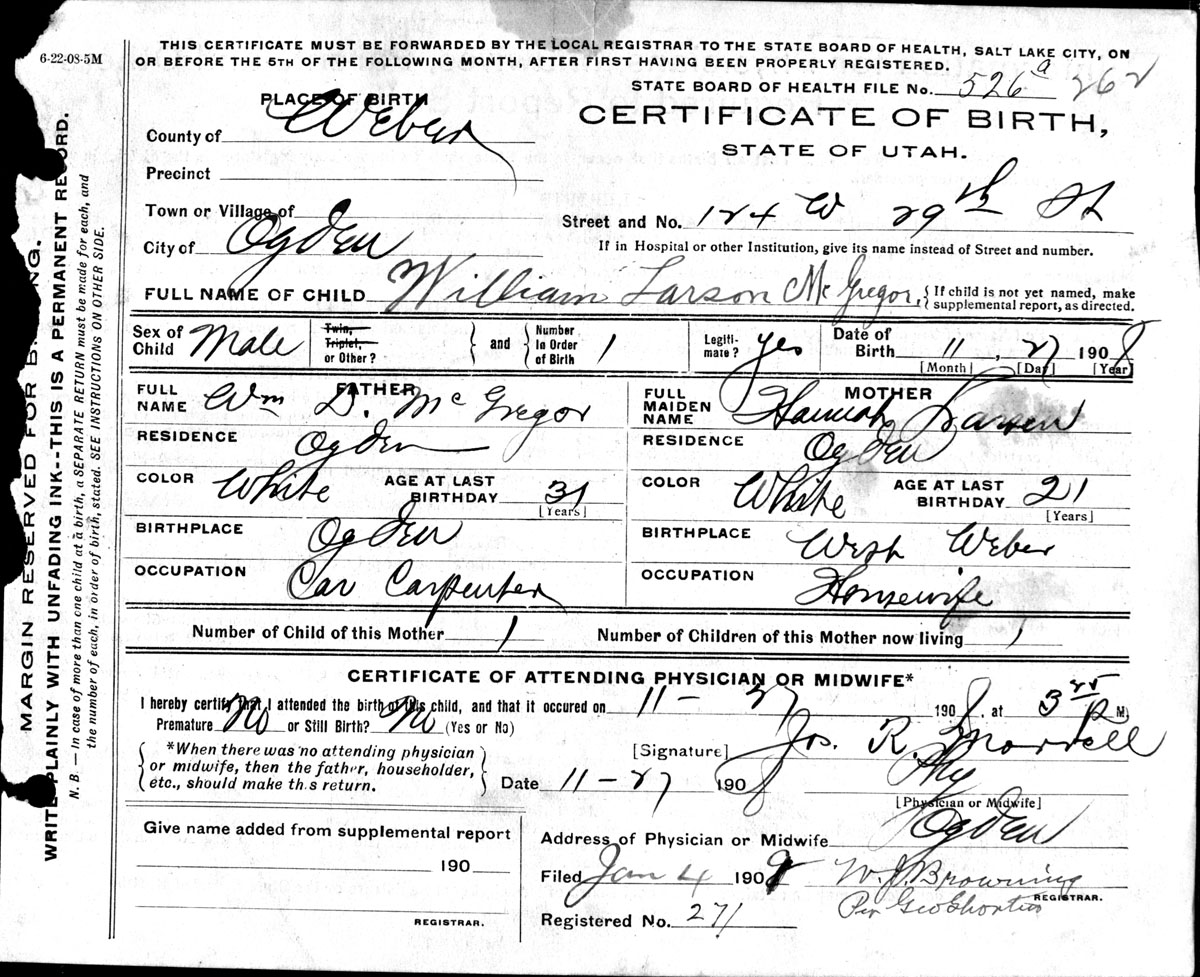 6-22-08-5M
THIS CERTIFICATE MUST BE FORWARDED BY THE LOCAL REGISTRAR TO THE STATE BOARD OF HEALTH, SALT LAKE CITY, ON
OR BEFORE THE 5TH OF THE FOLLOWING MONTH, AFTER FIRST HAVING BEEN PROPERLY REGISTERED.
STATE BOARD OF HEALTH FILE No. 526 a 262
PLACE OF BIRTH
CERTIFICATE OF BIRTH,
STATE OF UTAH.
County of Weber
Precinct
Town or Village of
Street and No. 124 W 29th St
City of Ogden
If in Hospital or other Institution, give its name instead of Street and number.
FULL NAME OF CHILD William Larson McGregor. { If child is not yet named, make
supplemental report, as directed.
Sex of Child Male Twin, Triplet, or Other? } and { Number in Order of Birth 1 Legiti-mate? yes Date of Birth 11, 27 1908
[Month] [Day] [Year]
FATHER MOTHER
FULL NAME Wm D. McGregor FULL MAIDEN NAME Hannah Larsen
RESIDENCE Ogden RESIDENCE Ogden
COLOR White AGE AT LAST BIRTHDAY 31 [Years] COLOR White AGE AT LAST BIRTHDAY 21 [Years]
BIRTHPLACE Ogden BIRTHPLACE West Weber
OCCUPATION Car Carpenter OCCUPATION Housewife
Number of Child of this Mother 1 Number of Children of this Mother now living 1
CERTIFICATE OF ATTENDING PHYSICIAN OR MIDWIFE*
I hereby certify that I attended the birth of this child, and that it occured on 11-27 1908, at 3 P M)
Premature No or Still Birth? No (Yes or No)
{ *When there was no attending physician
or midwife, then the father, householder,
etc., should make this return. }
[Signature] Jos. R. Morrell
Date 11-27 1908 Phy
[Physician or Midwife]
Give name added from supplemental report
190
REGISTRAR.
Address of Physician or Midwife Ogden
Filed Jan 4 1909 W. J. Browning
REGISTRAR.
Registered No. 271 Per Geo Shorten
MARGIN RESERVED FOR B NG.
WRITE PLAINLY WITH UNFADING INK--THIS IS A PERMANENT RECORD.
N. B. — In case of more than one child at a birth, a SEPARATE RETURN must be made for each, and
the number of each, in order of birth, stated. SEE INSTRUCTIONS ON OTHER SIDE.